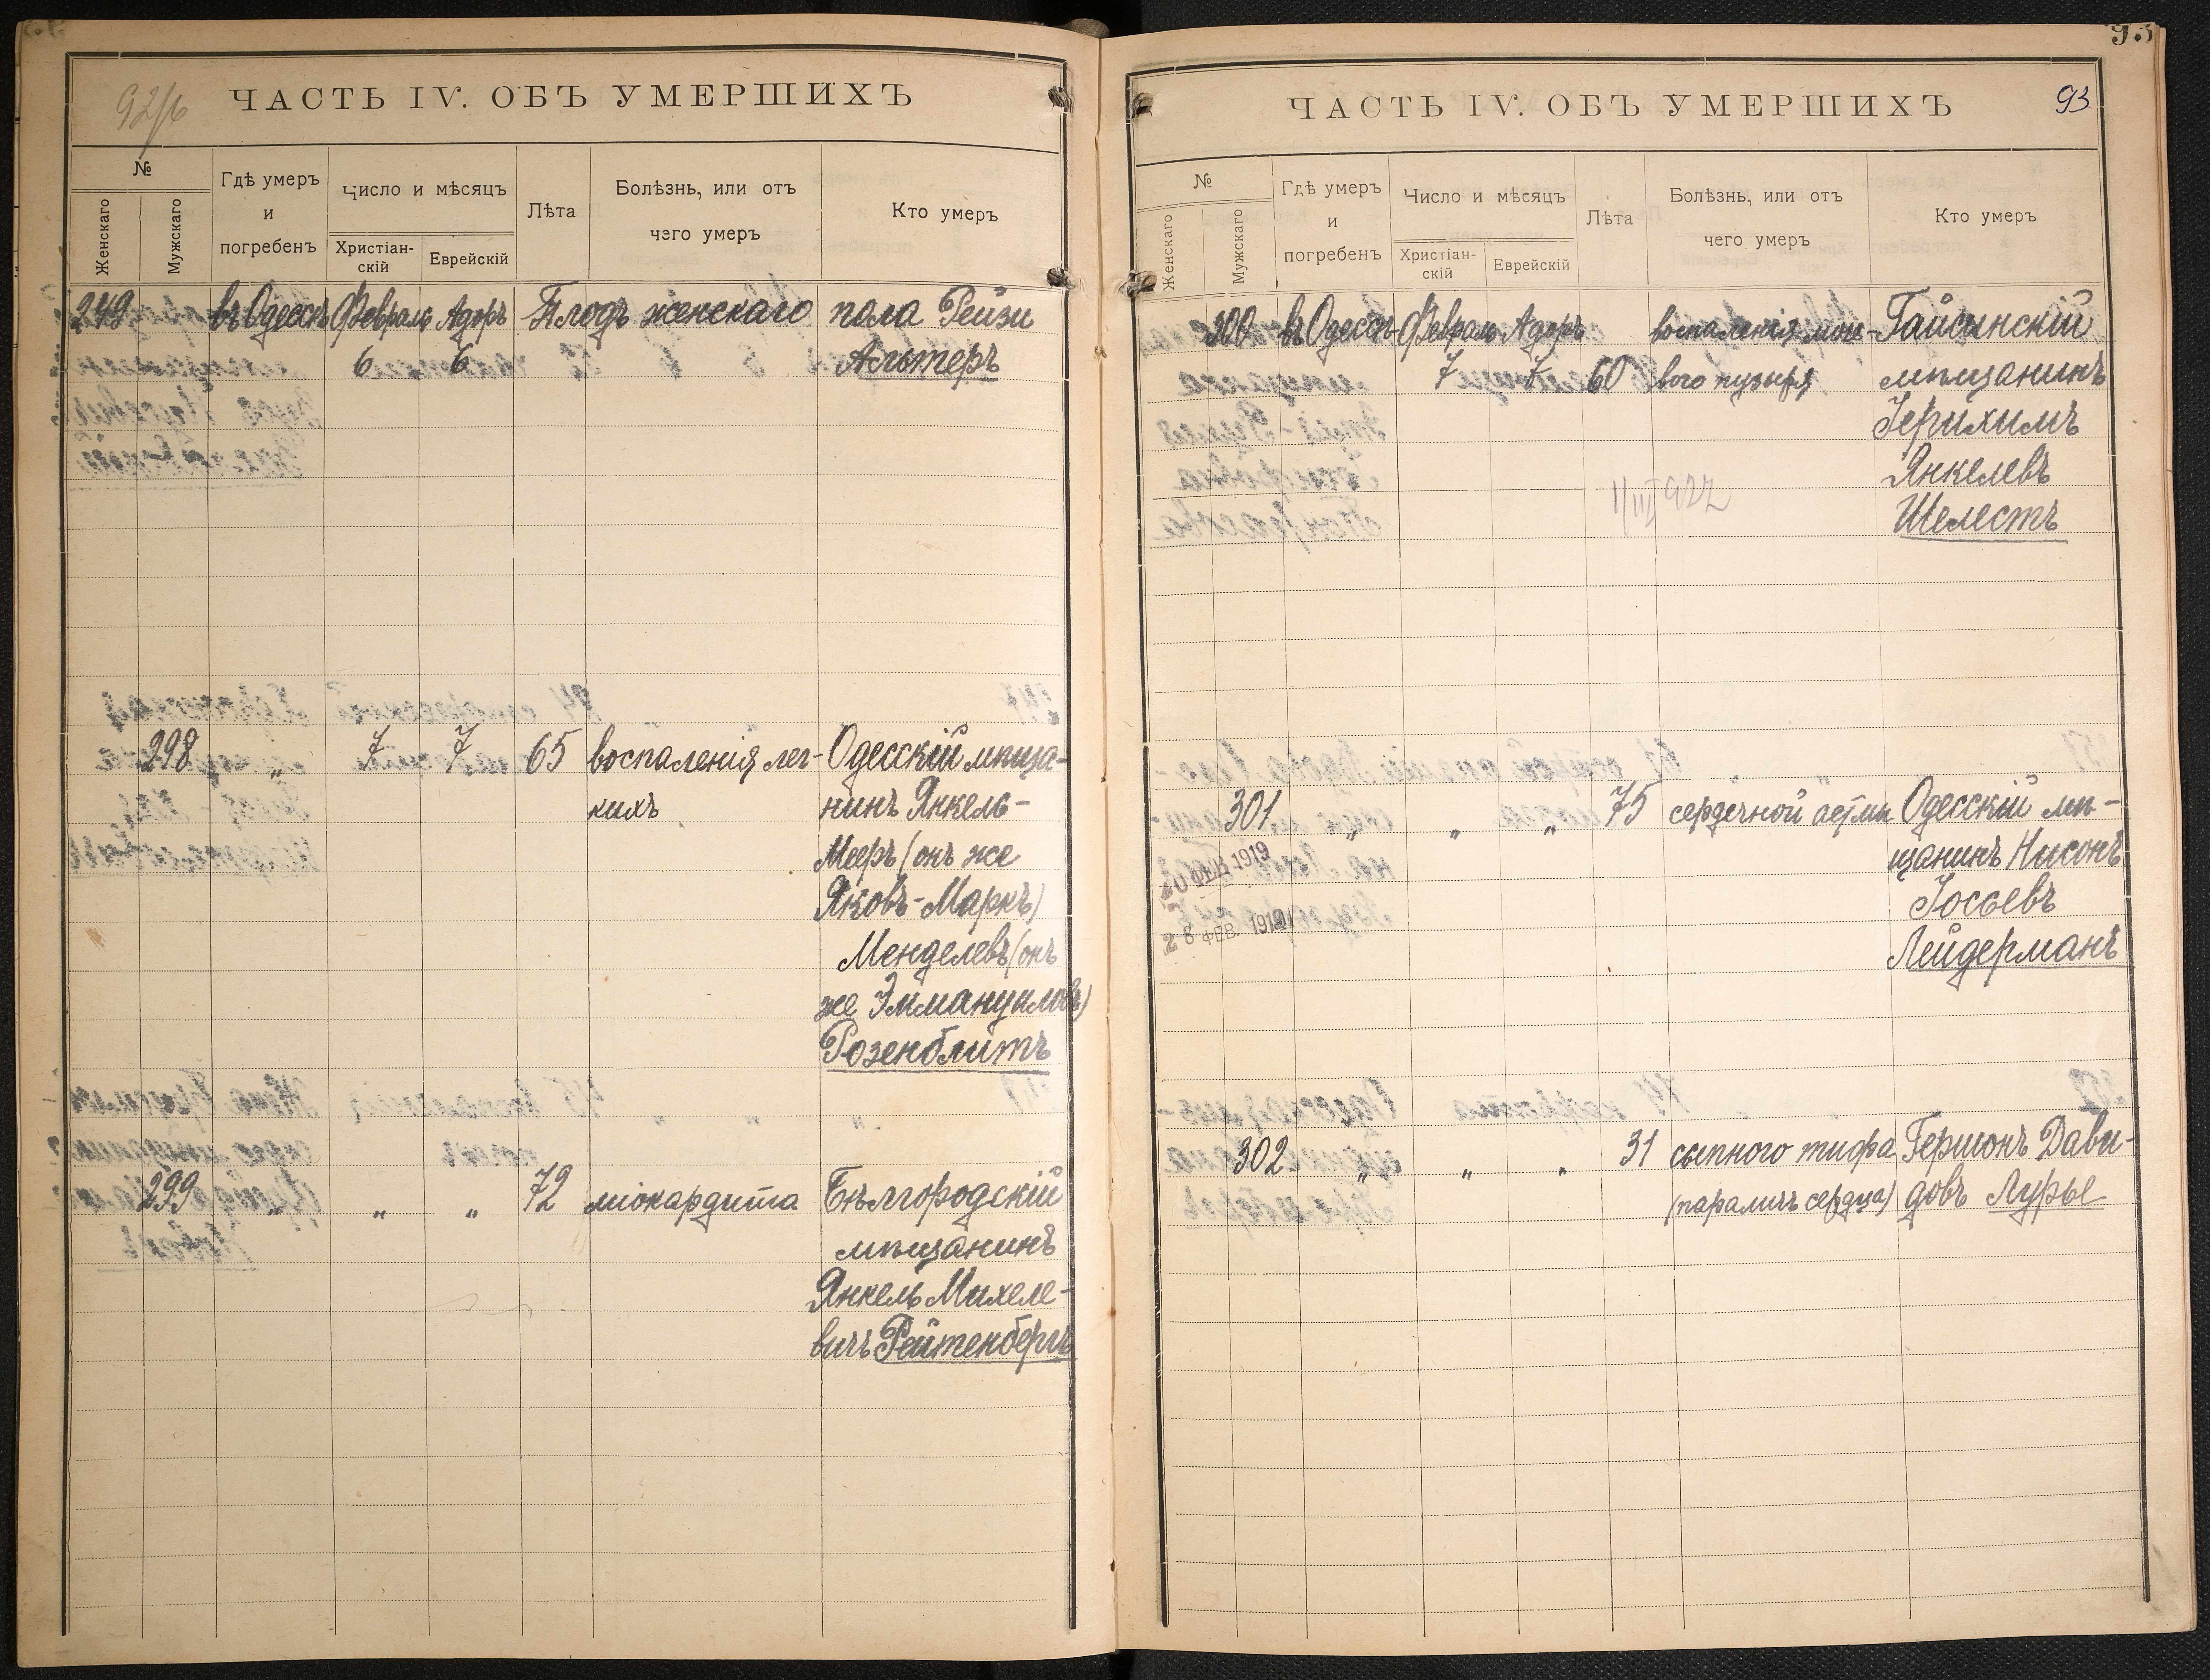 92/б
ЧАСТЬ IV. ОБЪ УМЕРШИХЪ
№
Женскаго
Мужскаго
Гдѣ умеръ
и
погребенъ
Число и мѣсяцъ
Христіан-
скій
Еврейскій
Лѣта
Болѣзнь, или отъ
чего умеръ
Кто умеръ
249 въ Одессѣ Февраль Адоръ Плодъ женскаго пола Рейзи
6 6 Альтеръ
298 „ 7 7 65 воспаленія лег- Одесскій мѣща-
кихъ нинъ Янкель-
Мееръ (онъ же
Яковъ-Маркъ)
Менделевъ (онъ
же Эммануиловъ)
Розенблитъ
299 „ „ „ 72 міокардита Бѣлгородскій
мѣщанинъ
Янкель Михеле-
вичъ Рейтенбергъ
93
ЧАСТЬ IV. ОБЪ УМЕРШИХЪ
93
№
Женскаго
Мужскаго
Гдѣ умеръ
и
погребенъ
Число и мѣсяцъ
Христіан-
скій
Еврейскій
Лѣта
Болѣзнь, или отъ
чего умеръ
Кто умеръ
300 въ Одессѣ Февраль Адоръ воспаленія моче- Гайсинскій
7 7 60 вого пузыря мѣщанинъ
Іерихимъ
Янкелевъ
1/III 922
Шелестъ
301 „ „ „ 75 сердечной астмы Одесскій мѣ-
щанинъ Нисонъ
ФЕВ 1919
Іосьевъ
28 ФЕВ. 1919
Лейдерманъ
302 „ „ „ 31 сыпного тифа Гершонъ Дави-
(параличъ сердца) довъ Лурье